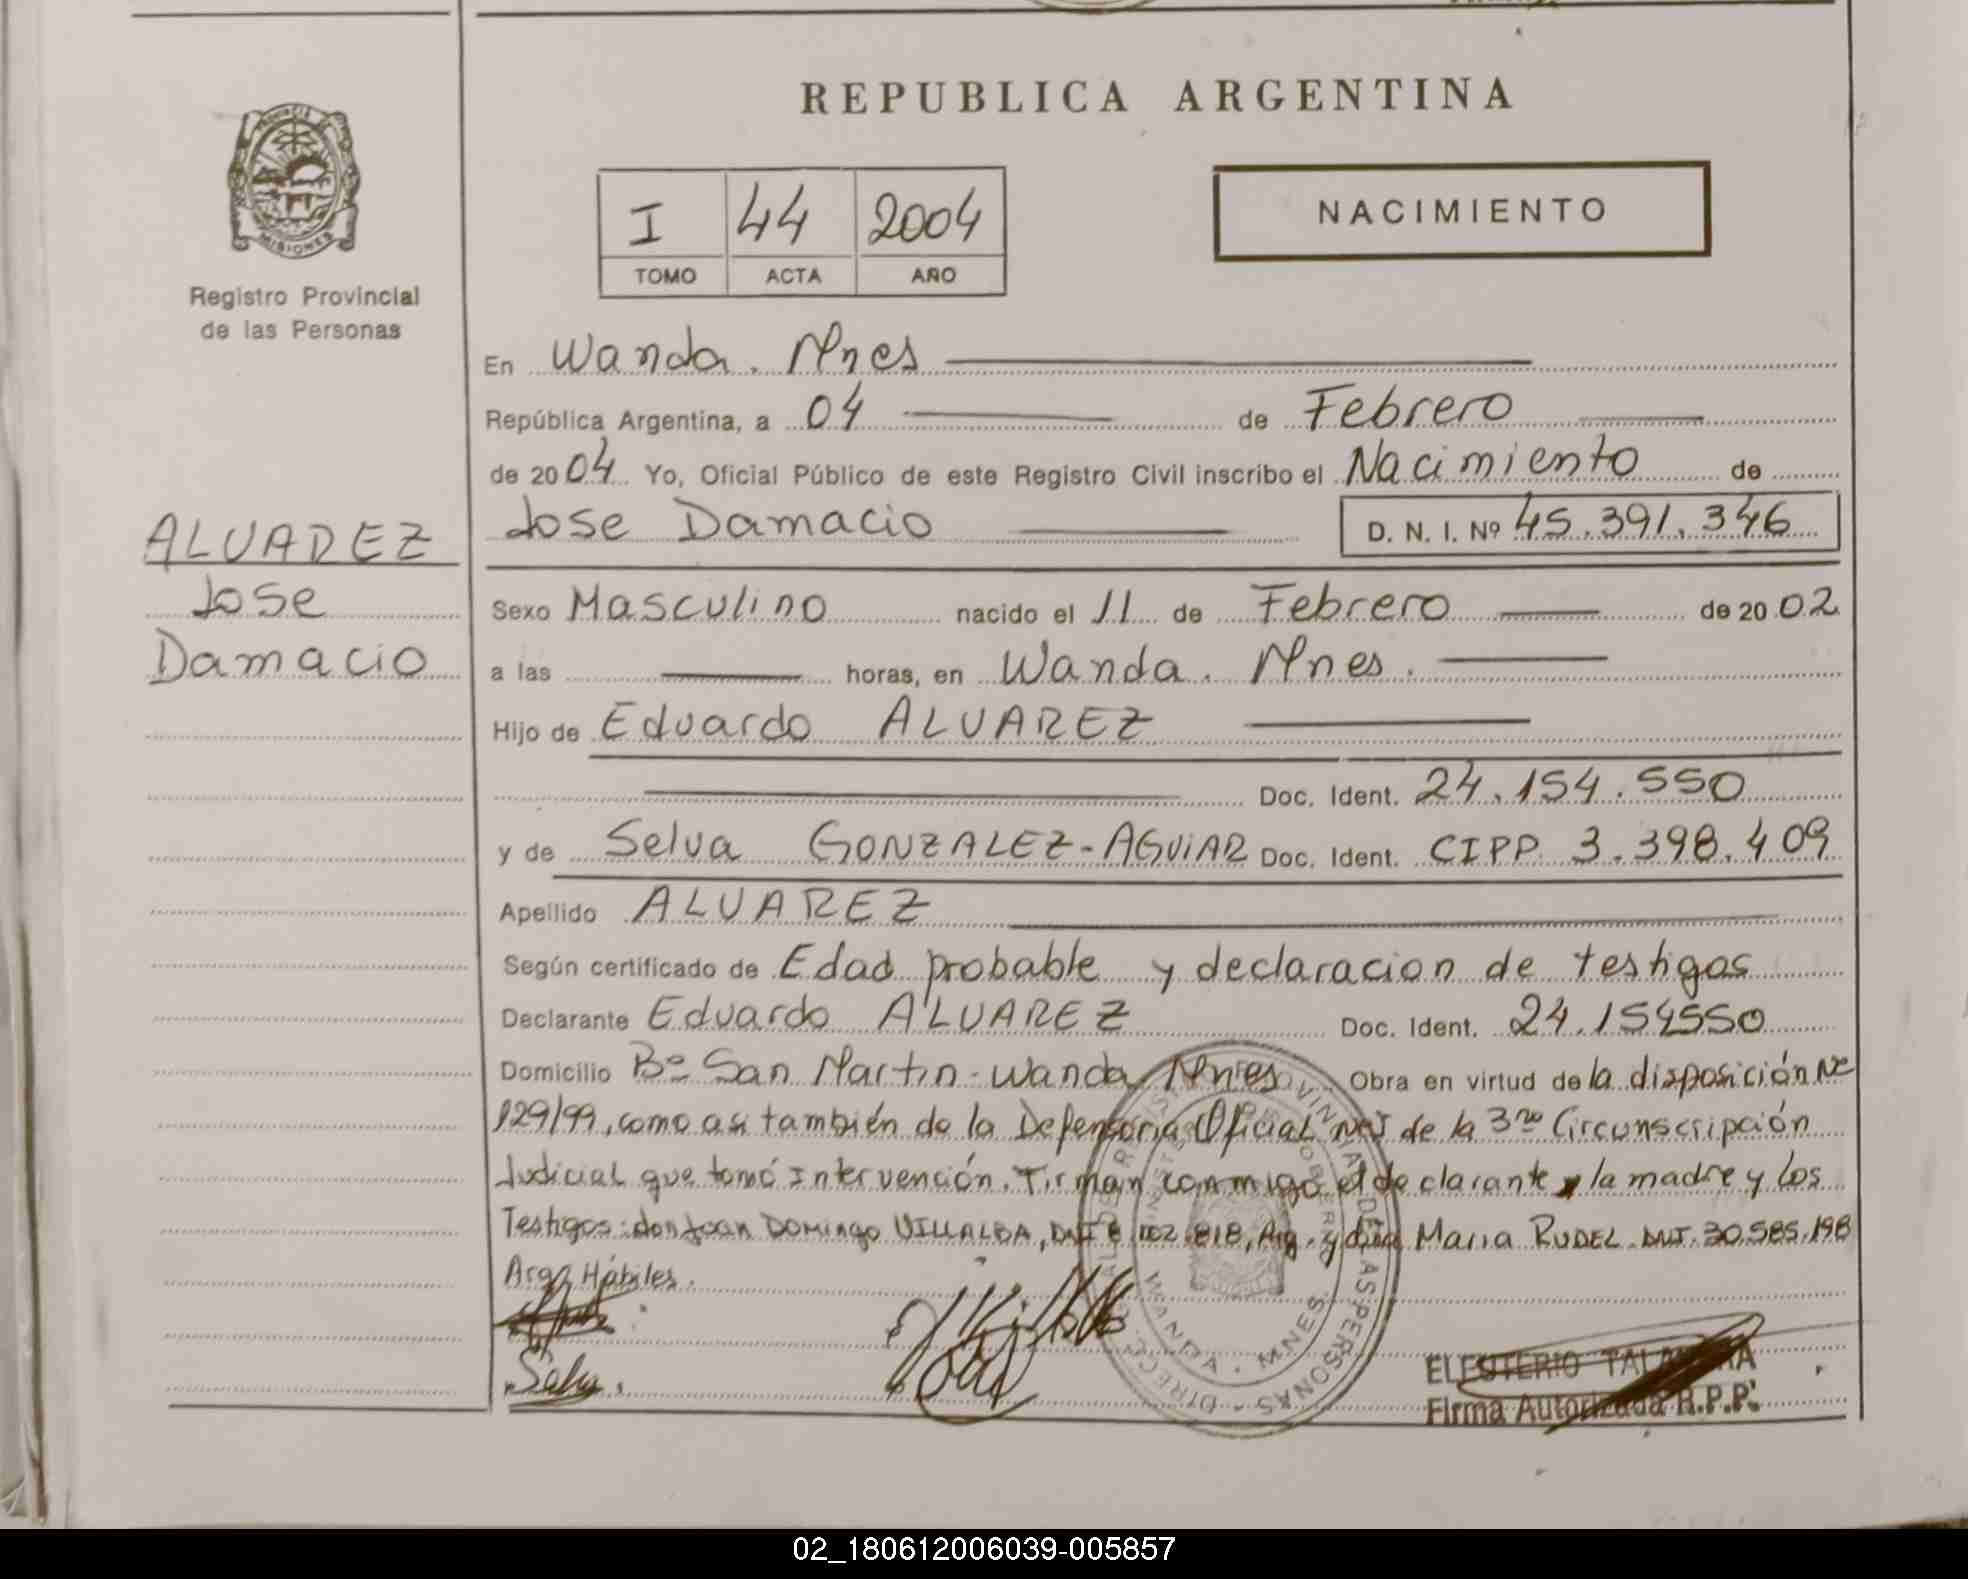 REPUBLICA ARGENTINA
PROVINCIA DE
MISIONES
Registro Provincial
de las Personas
I 44 2004
TOMO ACTA AÑO
NACIMIENTO
En Wanda. Mnes
República Argentina, a 04 de Febrero
de 2004 Yo, Oficial Público de este Registro Civil inscribo el Nacimiento de
Jose Damacio D. N. I. Nº 45.391.346
ALVAREZ
Jose
Damacio
Sexo Masculino nacido el 11 de Febrero de 2002
a las horas, en Wanda. Mnes.
Hijo de Eduardo ALVAREZ
Doc. Ident. 24.154.550
y de Selva GONZALEZ-AGUIAR Doc. Ident. CIPP 3.398.409
Apellido ALVAREZ
Según certificado de Edad probable y declaracion de testigos
Declarante Eduardo ALVAREZ Doc. Ident. 24.154550
Domicilio Bº San Martin-Wanda Mnes Obra en virtud de la disposición Nº
129/99, como asi también de la Defensoria Oficial de la 3ra Circunscripción
Judicial que tomó Intervención. Firman conmigo el declarante y la madre y los
Testigos: don Juan DOMingo VILLALBA, DNI 8.002.818, Arg. y dña Maria RUDEL DNI. 30.585.198
Arg. Hábiles.
Selva.
DIRECC. REGISTRO PROVINCIAL DE LAS PERSONAS
WANDA - MNES
ELEUTERIO TALAVERA
Firma Autorizada R.P.P.
02_180612006039-005857